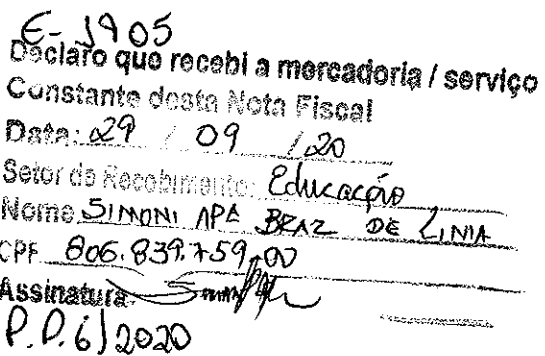 E-1905
Declaro que recebi a mercadoria / serviço
Constante desta Nota Fiscal
Data: 29 / 09 / 20
Setor de Recebimento: Educação
Nome SIMONI APª BRAZ DE LINIA
CPF 806.839.759-00
Assinatura:
P.P. 6/2020